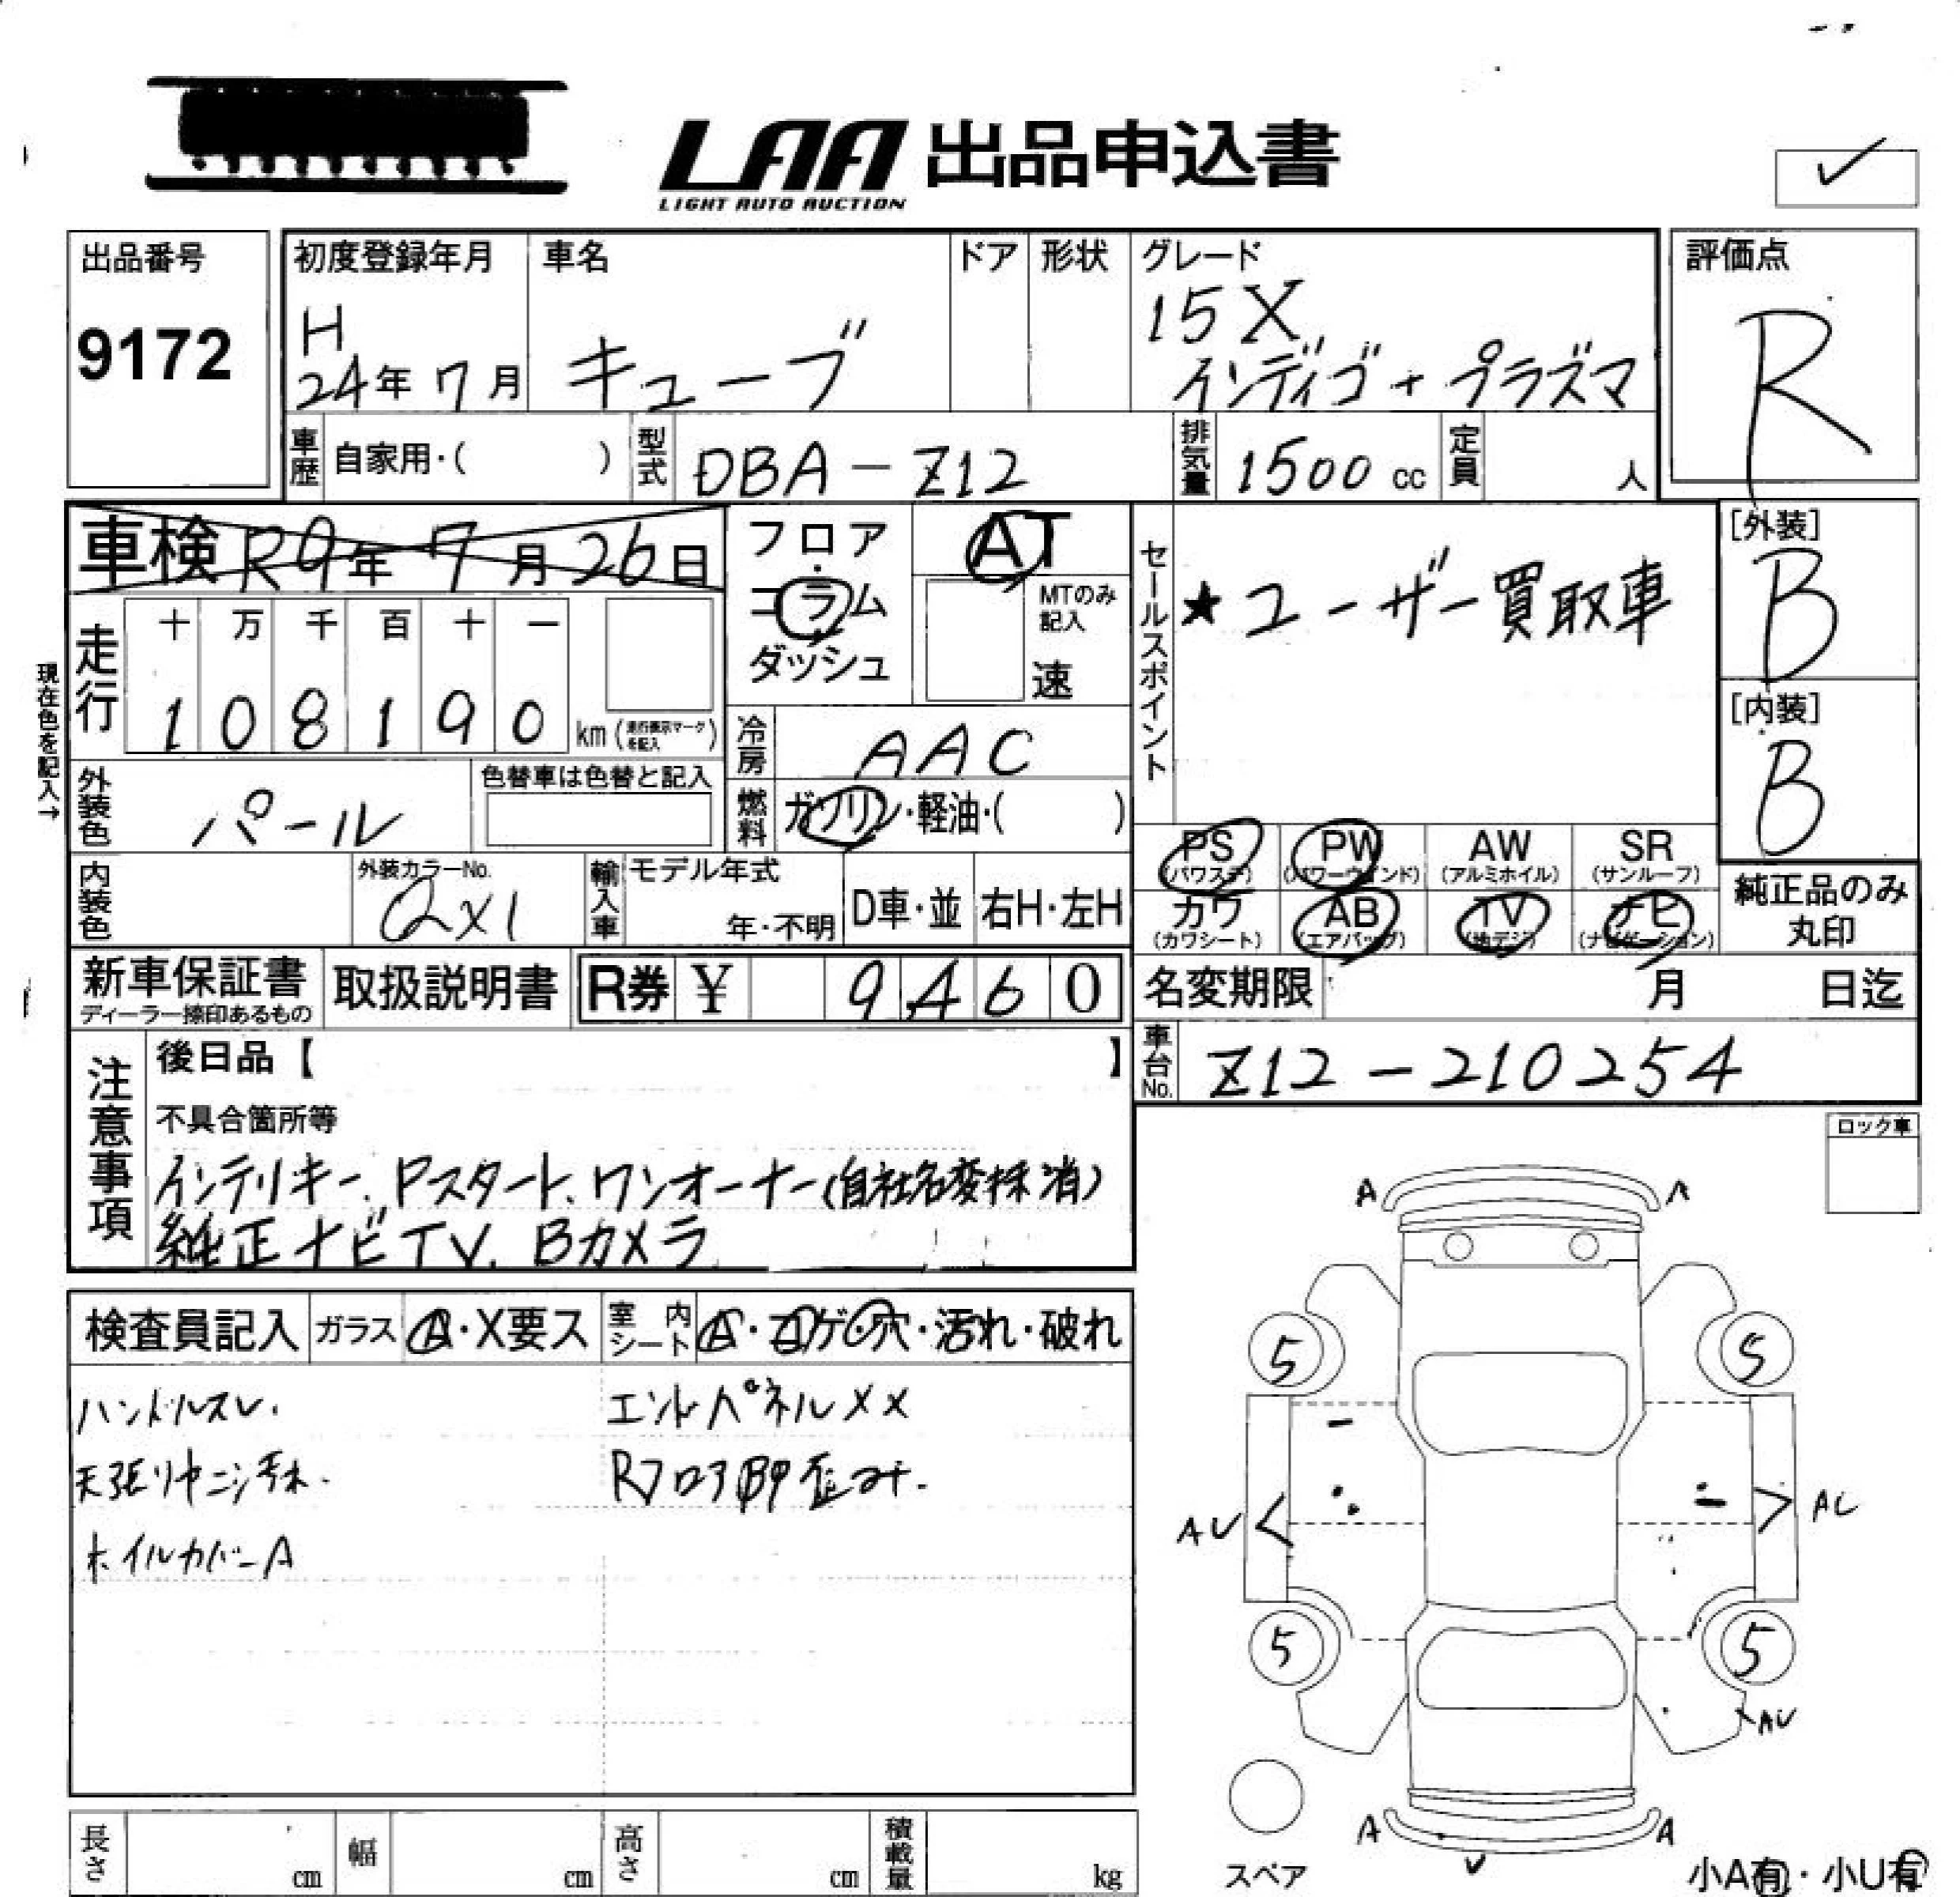 LAA 出品申込書
LIGHT AUTO AUCTION
出品番号
9172
初度登録年月
H
24年 7月
車名
キューブ
ドア
形状
グレード
15X
インディゴ+プラズマ
評価点
R
車歴 自家用・( )
型式 DBA-Z12
排気量 1500 cc
定員 人
車検 R9年 7月 26日
フロア
コラム
ダッシュ
AT
MTのみ
記入
速
セールスポイント
★ユーザー買取車
[外装]
B
[内装]
B
現在色を記入→
走行
十 万 千 百 十 一
1 0 8 1 9 0 km
冷房 AAC
外装色 パール
色替車は色替と記入
燃料 ガソリン・軽油・( )
PS
(パワステ)
PW
(パワーウインド)
AW
(アルミホイル)
SR
(サンルーフ)
カワ
(カワシート)
AB
(エアバッグ)
TV
(地デジ)
ナビ
(ナビゲーション)
純正品のみ
丸印
内装色
外装カラーNo.
QX1
輸入車
モデル年式
年・不明
D車・並
右H・左H
新車保証書
ディーラー捺印あるもの
取扱説明書
R券 ¥ 9460
名変期限 月 日迄
車台No. Z12-210254
注意事項
後日品【 】
不具合箇所等
インテリキー、Pスタート、ワンオーナー(自社名変抹消)
純正ナビTV、Bカメラ
ロック車
検査員記入
ガラス A・X要ス
室内シート A・コゲ・穴・汚れ・破れ
ハンドルスレ.
天張りヤニシ汚れ.
ホイルカバーA
エンドパネルXX
Rフロア凹歪み.
A A
5 5
AU AU
5 5
AU
A A
U
スペア
小A有・小U有
長さ cm
幅 cm
高さ cm
積載量 kg